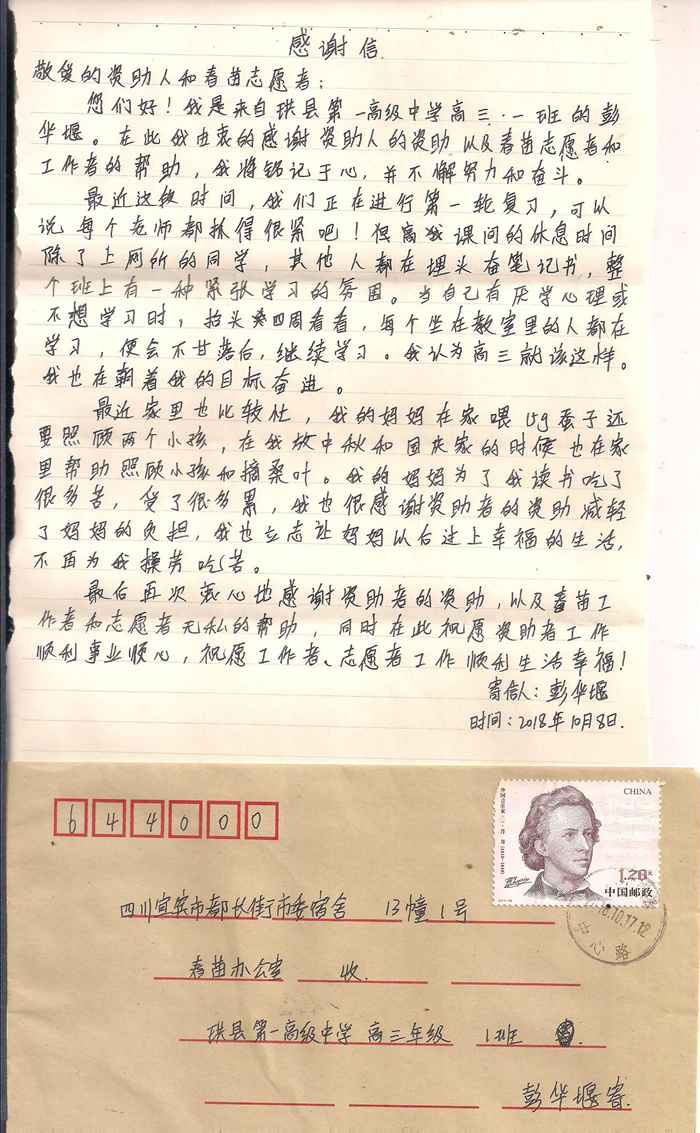 感谢信
敬爱的资助人和春苗志愿者：
您们好！我是来自珙县第一高级中学高三·一班的彭
华堰。在此我由衷的感谢资助人的资助以及春苗志愿者和
工作者的帮助，我将铭记于心，并不懈努力和奋斗。
最近这段时间，我们正在进行第一轮复习，可以
说每个老师都抓得很紧吧！但离我课间的休息时间
除了上厕所的同学，其他人都在埋头奋笔记书，整
个班上有一种紧张学习的氛围。当自己有厌学心理或
不想学习时，抬头四周看看，每个坐在教室里的人都在
学习，便会不甘落后，继续学习。我认为高三就该这样。
我也在朝着我的目标奋进。
最近家里也比较忙，我的妈妈在家喂蚕子还
要照顾两个小孩，在我放中秋和国庆家的时候也在家
里帮助照顾小孩和摘桑叶。我的妈妈为了我读书吃了
很多苦，受了很多累，我也很感谢资助者的资助减轻
了妈妈的负担，我也立志让妈妈以后过上幸福的生活，
不再为我操劳吃苦。
最后再次衷心地感谢资助者的资助，以及春苗工
作者和志愿者无私的帮助，同时在此祝愿资助者工作
顺利事业顺心，祝愿工作者、志愿者工作顺利生活幸福！
寄信人：彭华堰
时间：2018年10月8日.
644000
CHINA
1.20元
中国邮政
中心路
四川宜宾市都长街市委宿舍 13幢1号
春苗办公室 收.
珙县第一高级中学 高三年级 1班
彭华堰寄